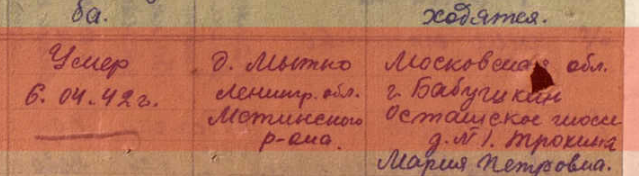 ба. ходятся.
Умер
6.04.42г.
д. Мытно
Ленингр. обл.
Мстинского
р-она.
Московская обл.
г. Бабушкин
Осташское шоссе
д. №1. Трохина
Мария Петровна.